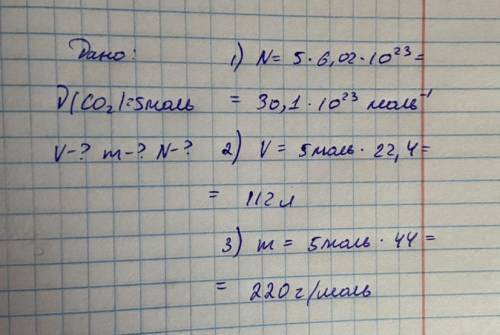 Дано:
D(CO₂)=5моль
V-? m-? N-?
1) N= 5·6,02·10²³=
= 30,1·10²³ моль⁻¹
2) V = 5моль·22,4=
= 112л
3) m = 5моль·44=
= 220г/моль